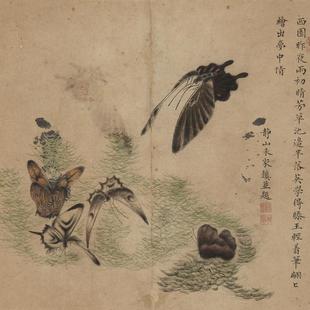 西園昨夜雨初晴芳草池邊半落英學得滕王輕着筆翩〻
繪出夢中情
靜山朱家並題